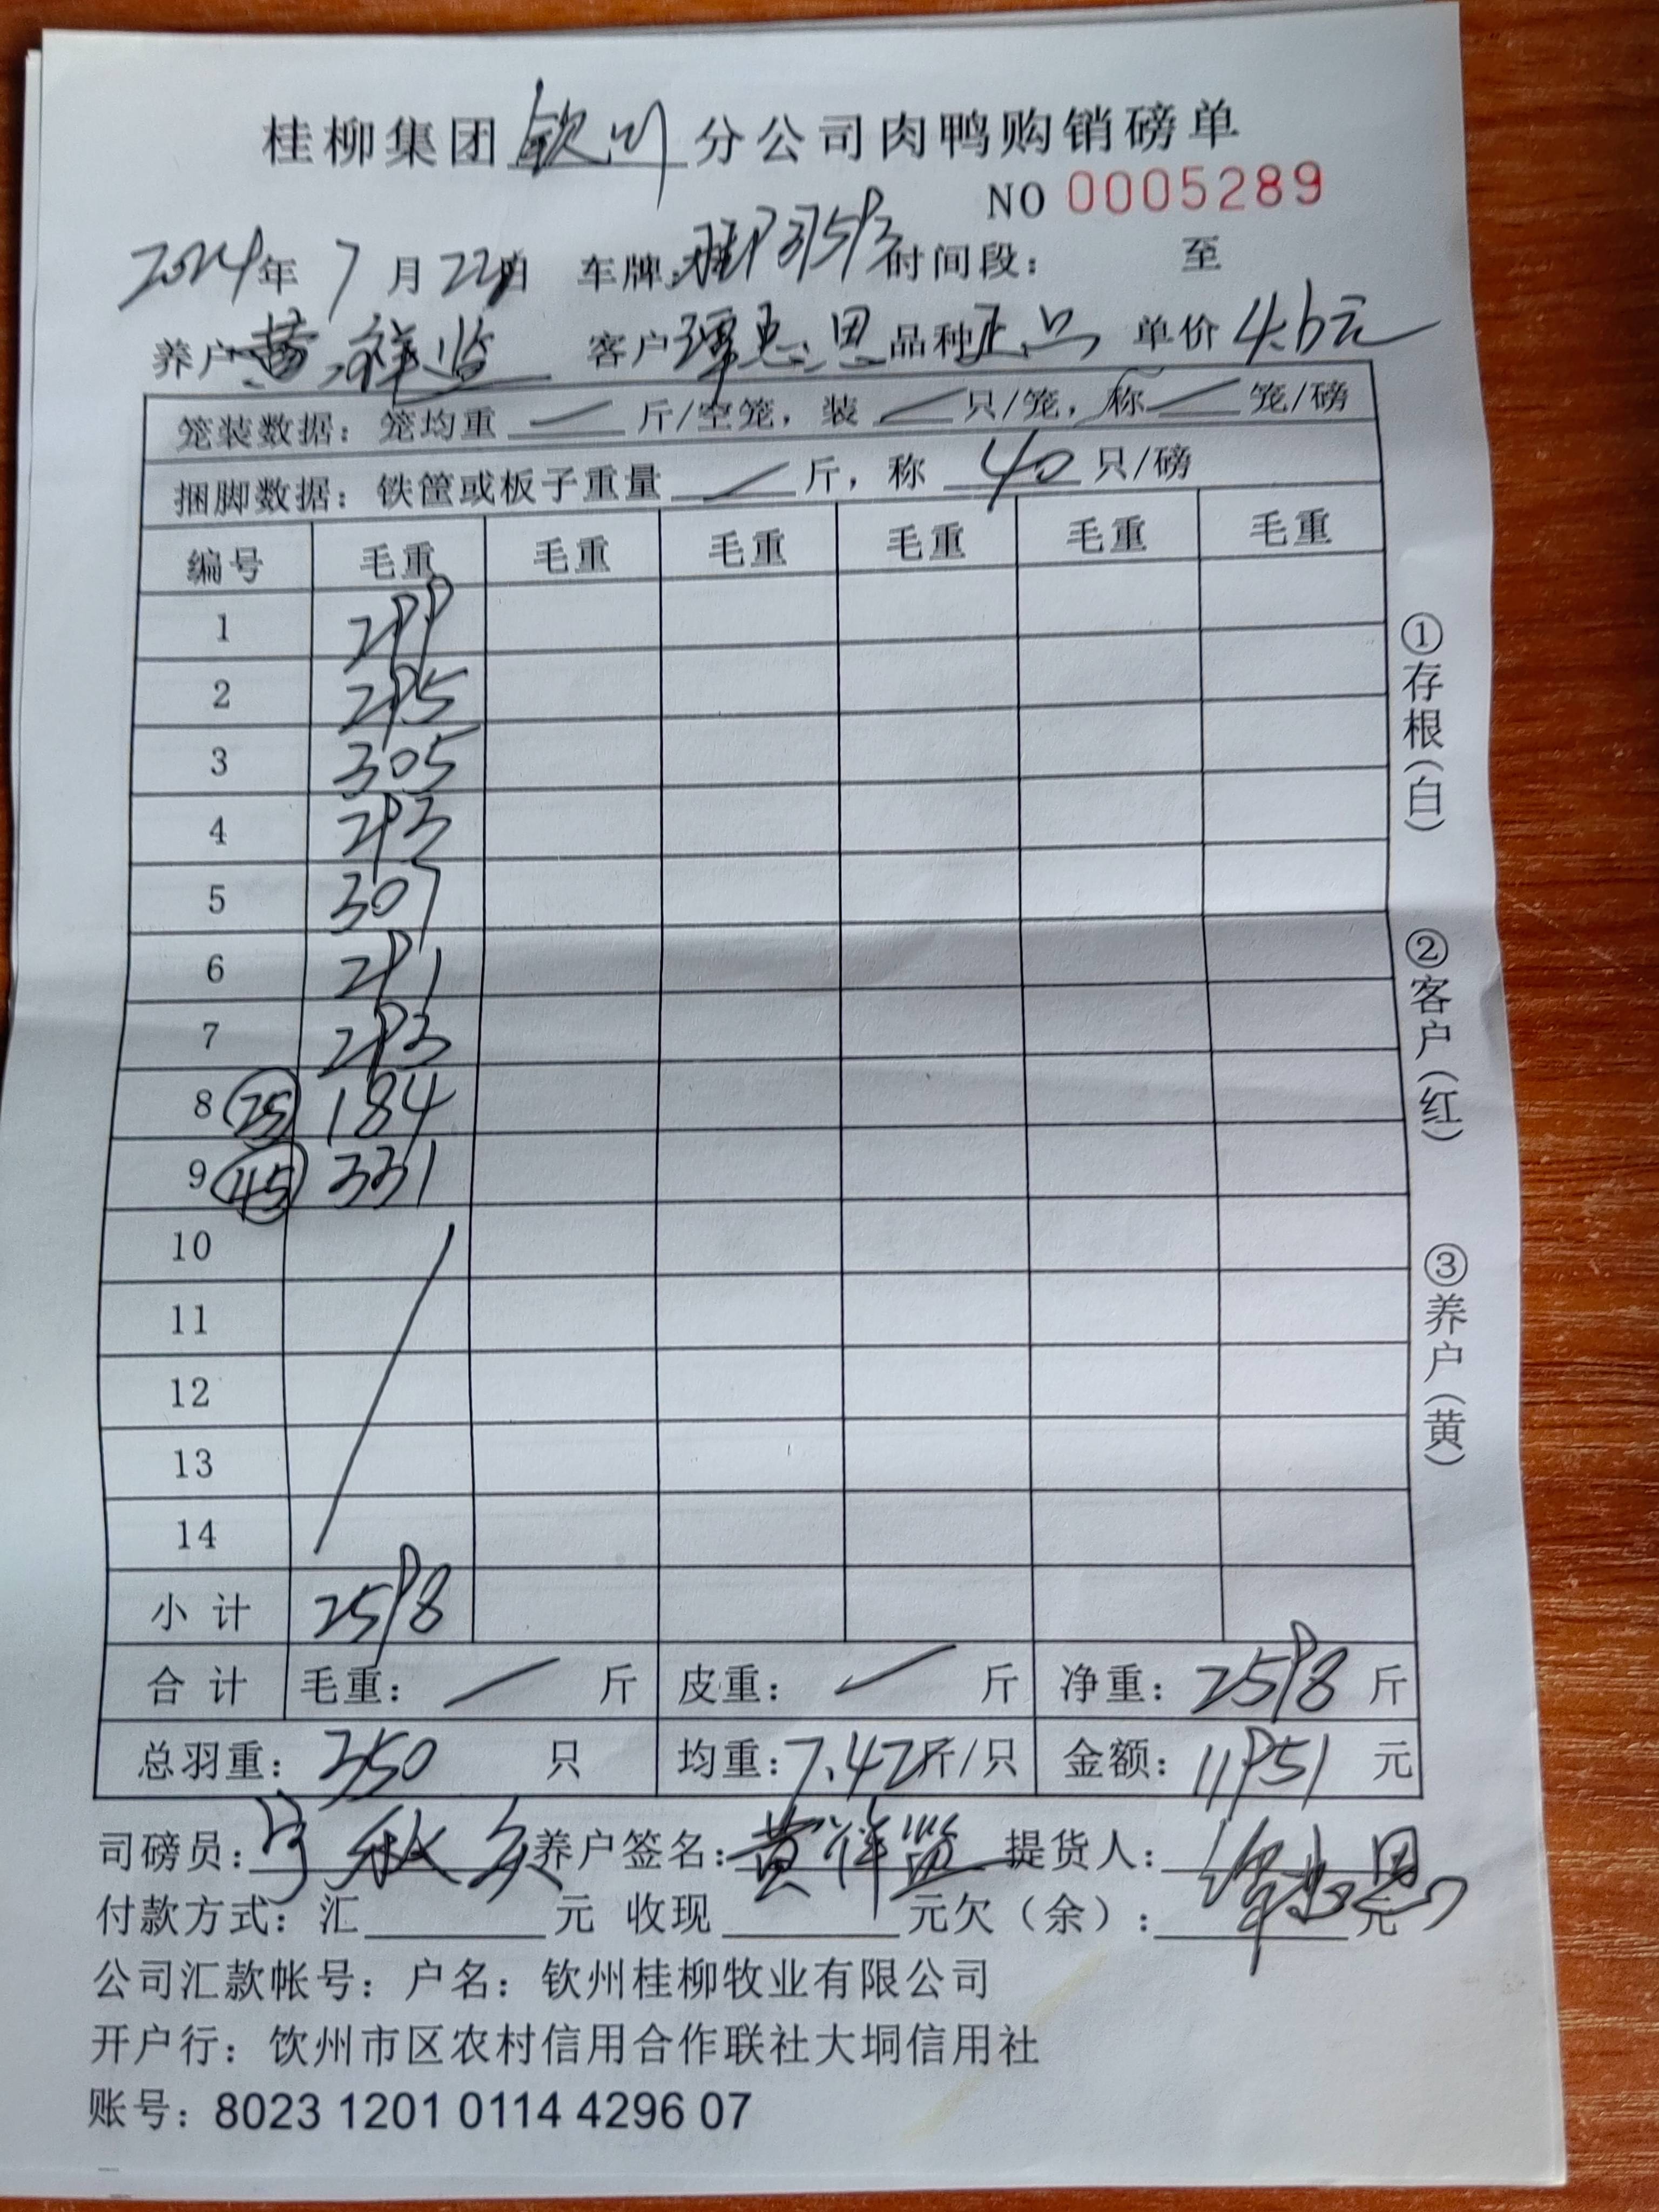 桂柳集团 钦州 分公司肉鸭购销磅单
NO 0005289
2024年 7月22日 车牌: 3593 时间段: 至
养户 黄祥监 客户 谭惠思 品种 正品 单价 4.6元
笼装数据: 笼均重 / 斤/空笼, 装 / 只/笼, 称 / 笼/磅
捆脚数据: 铁筐或板子重量 / 斤, 称 40 只/磅
编号 毛重 毛重 毛重 毛重 毛重 毛重
1 299
2 295
3 305
4 293
5 307
6 291
7 293
8 (25) 184
9 (45) 331
10
11
12
13
14
小计 2598
合计 毛重: / 斤 皮重: / 斤 净重: 2598 斤
总羽重: 350 只 均重: 7.42斤/只 金额: 11951 元
司磅员: 养户签名: 黄祥监 提货人: 谭惠思
付款方式: 汇 元 收现 元欠(余): 元
公司汇款帐号: 户名: 钦州桂柳牧业有限公司
开户行: 饮州市区农村信用合作联社大垌信用社
账号: 8023 1201 0114 4296 07
①存根(白)
②客户(红)
③养户(黄)